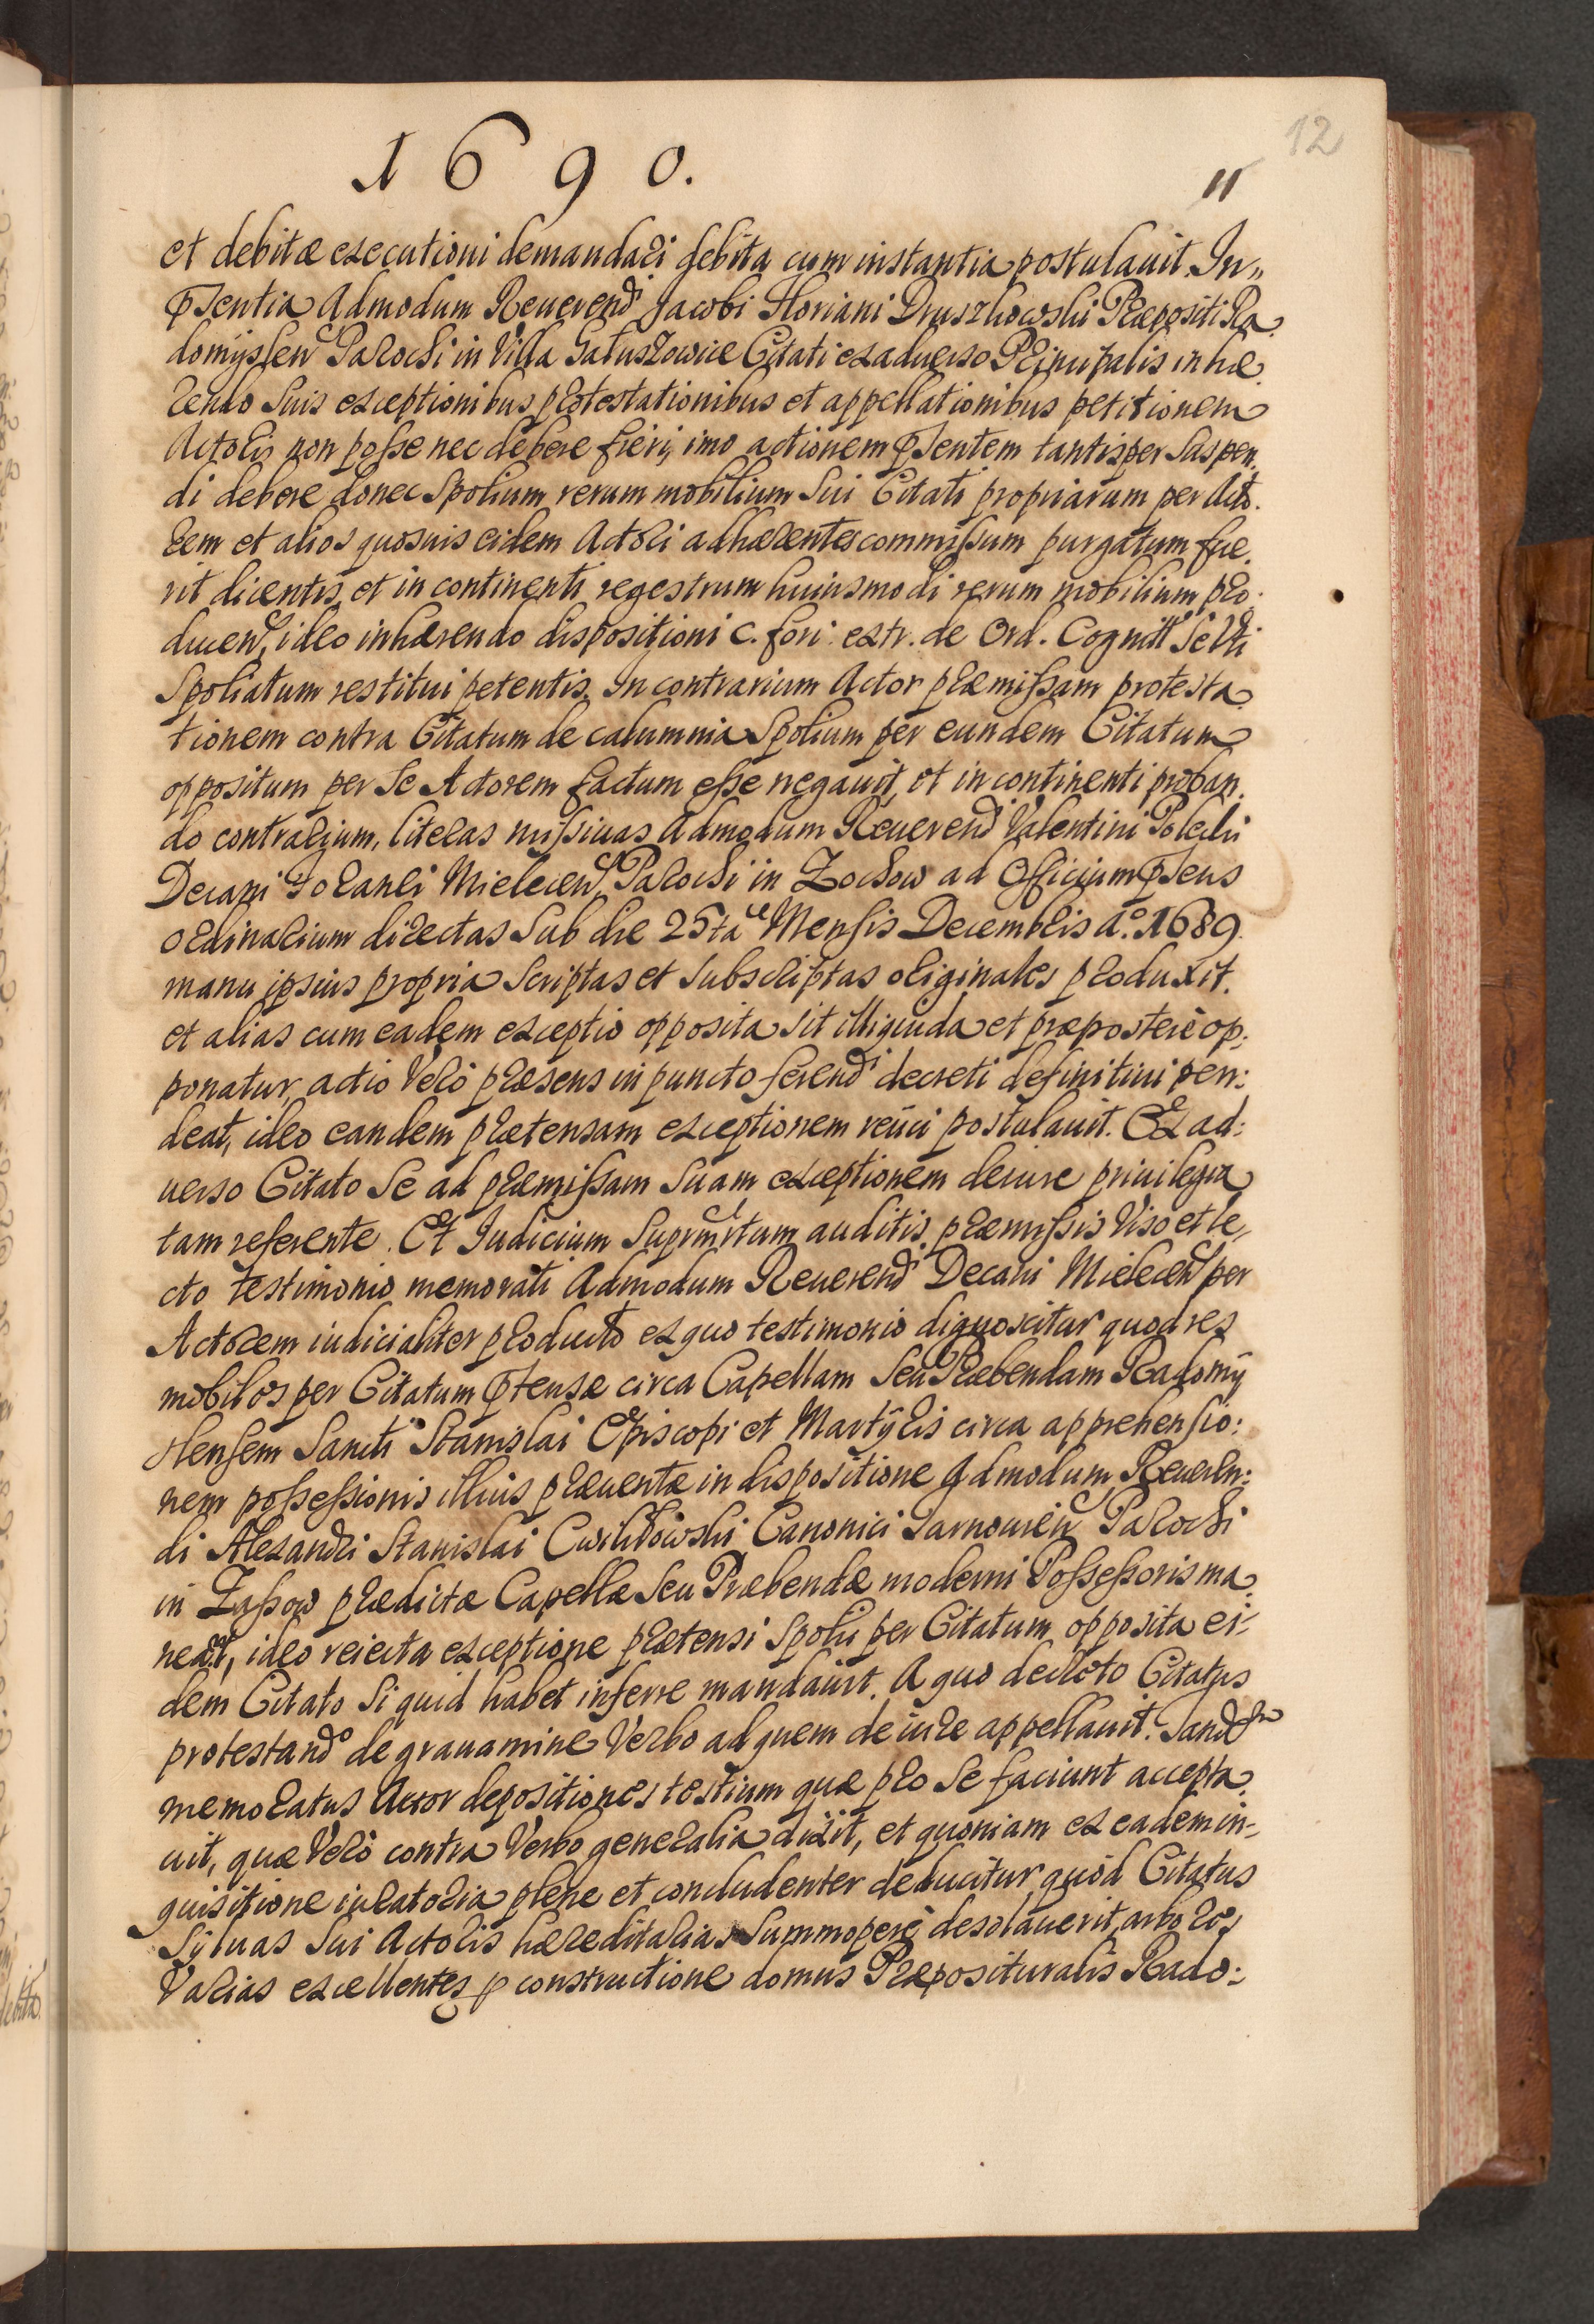 12
1690.
11
et debitæ executioni demandari debita cum instantia postulauit. In„
pñsentia Admodum Reuerend Jacobi Floriani Druszkowski Præpositi Ra-
domyslen Parochi in Villa Gatuszowice Citati ex aduerso Principalis inhæ-
rendo suis exceptionibus protestationibus et appellationibus petitionem
Actoris non posse nec debere fieri, imo actionem pñsentem tantisper suspen-
di debere donec spolium rerum mobilium sui Citati propriarum per Acto-
rem et alios quosuis eidem Actori adhærentes commissum purgatum fue-
rit dicentis, et in continenti regestrum huiusmodi rerum mobilium pro-
ducen, ideo inhærendo dispositioni C. fori: extr. de Ord. Cognitt se uti
spoliatum restitui petentis. In contrarium Actor præmissam protesta-
tionem contra Citatum de calumnia spolium per eundem Citatum
oppositum per se Actorem factum esse negauit, et in continenti proban-
do contrarium, literas missiuas Admodum Reuerend Valentini
Decani Foranei Mielecen, Parochi in Zochow ad Officium pñsens
ordinarium directas sub die 25ta Mensis Decembris Aº. 1689.
manu ipsius propria scriptas et subscriptas originales produxit.
et alias cum eadem exceptio opposita sit illiquida et præposterè op:
ponatur, actio verò præsens in puncto ferend decreti definitiui pen:
deat, ideo eandem prætensam exceptionem reiici postulauit. Ex ad:
uerso Citato se ad præmissam suam exceptionem de iure priuilegia-
tam referente. Et Judicium auditis præmissis viso et le-
cto testimonio memorati Admodum Reuerend Decani Mielecen per
Actorem iudicialiter producto ex quo testimonio dignoscitur quod res
mobiles per Citatum ptensæ circa Capellam seu Præbendam Radomy
slensem Sancti Stanislai Episcopi et Martyris circa apprehensio:
nem possessionis illius præuentæ in dispositione Admodum Reueren:
di Alexandri Stanislai Cwiklowski Canonici Tarnouien Parochi
in Zassow prædictæ Capellæ seu Præbendæ moderni Possessoris ma-
neat, ideo reiecta exceptione prætensi spolii per Citatum opposita ei-
dem Citato si quid habet inferre mandauit. A quo decreto Citatus
protestando de grauamine verbo ad quem de iure appellauit. Tandem
memoratus Actor depositiones testium quæ pro se faciunt accepta-
uit, quæ verò contra verbo generalia dixit, et quoniam ex eadem in-
quisitione iuratoria plene et concludenter deducitur quòd Citatus
syluas sui Actoris hæreditarias summoperè desolauerit, arbores
varias excellentes p constructione domus Præposituralis Rado: